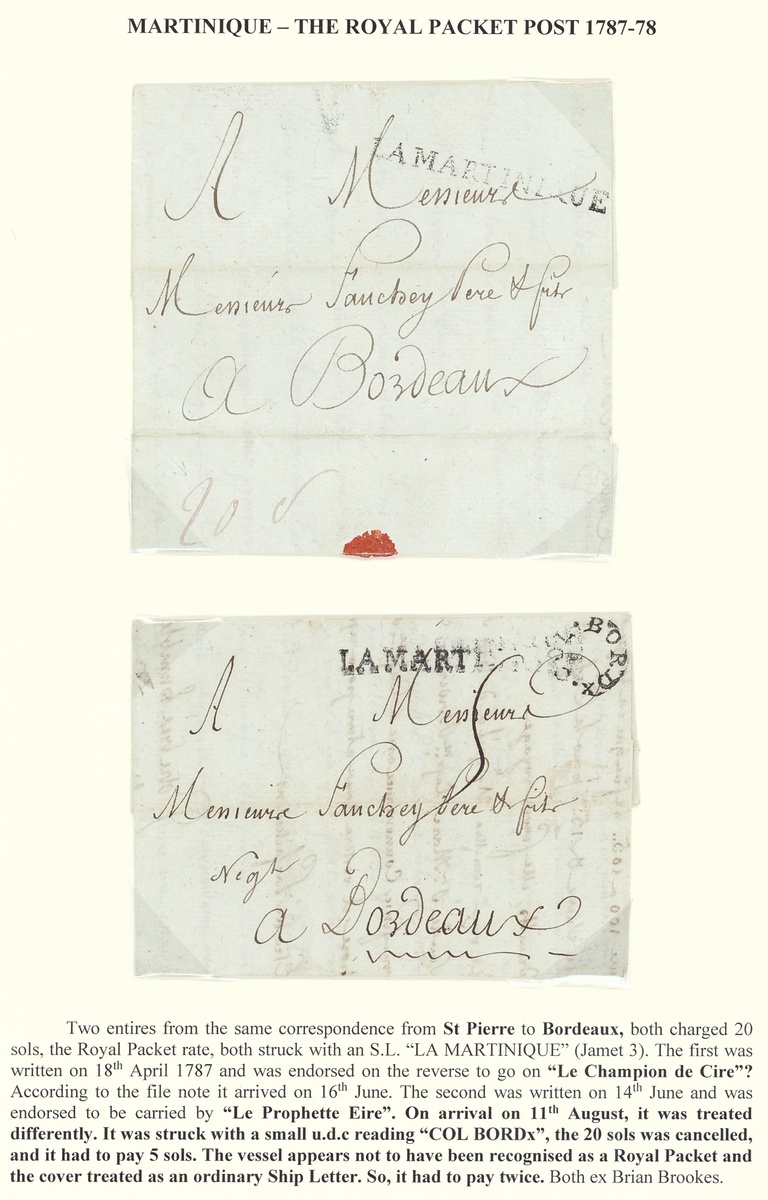 MARTINIQUE – THE ROYAL PACKET POST 1787-78
LA MARTINIQUE
A Messieurs
Messieurs Fauchey Pere & fils
a Bordeaux
20 s
LA MARTI
COL. BORDx.
A Messieurs
5
Messieurs Fauchey Pere & fils
Negt
a Bordeaux
Two entires from the same correspondence from St Pierre to Bordeaux, both charged 20
sols, the Royal Packet rate, both struck with an S.L. “LA MARTINIQUE” (Jamet 3). The first was
written on 18th April 1787 and was endorsed on the reverse to go on “Le Champion de Cire”?
According to the file note it arrived on 16th June. The second was written on 14th June and was
endorsed to be carried by “Le Prophette Eire”. On arrival on 11th August, it was treated
differently. It was struck with a small u.d.c reading “COL BORDx”, the 20 sols was cancelled,
and it had to pay 5 sols. The vessel appears not to have been recognised as a Royal Packet and
the cover treated as an ordinary Ship Letter. So, it had to pay twice. Both ex Brian Brookes.